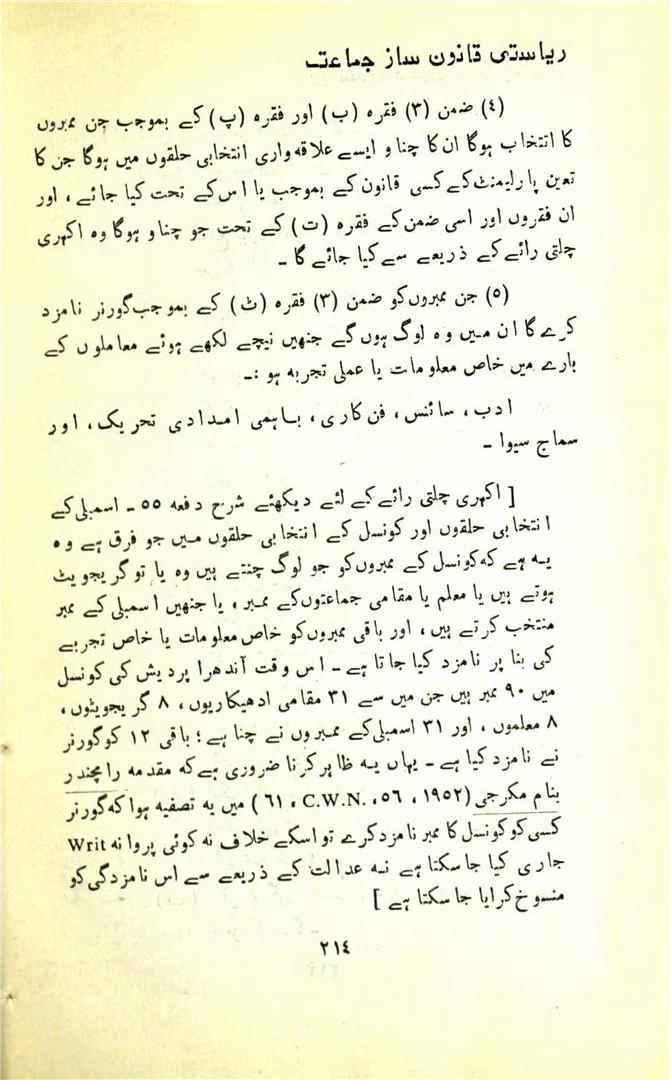 ریاستی قانون ساز جماعت
(٤) ضمن (٣) فقرہ (ب) اور فقرہ (پ) کے بموجب جن ممبروں
کا انتخاب ہوگا ان کا چناو ایسے علاقہ واری انتخابی حلقوں میں ہوگا جن کا
تعین پارلیمنٹ کے کسی قانون کے بموجب یا اس کے تحت کیا جائے ، اور
ان فقروں اور اسی ضمن کے فقرہ (ت) کے تحت جو چناو ہوگا وہ اکہری
چلتی رائے کے ذریعے سے کیا جائے گا ۔
(٥) جن ممبروں کو ضمن (٣) فقرہ (ٹ) کے بموجب گورنر نامزد
کرے گا ان میں وہ لوگ ہوں گے جنھیں نیچے لکھے ہوئے معاملوں کے
بارے میں خاص معلومات یا عملی تجربہ ہو :۔
ادب ، سائنس ، فن کاری ، باہمی امدادی تحریک ، اور
سماج سیوا ۔
[ اکہری چلتی رائے کے لئے دیکھئے شرح دفعہ ٥٥ ۔ اسمبلی کے
انتخابی حلقوں اور کونسل کے انتخابی حلقوں میں جو فرق ہے وہ
یہ ہے کہ کونسل کے ممبروں کو جو لوگ چنتے ہیں وہ یا تو گریجویٹ
ہوتے ہیں یا معلم یا مقامی جماعتوں کے ممبر ، یا جنھیں اسمبلی کے ممبر
منتخب کرتے ہیں ، اور باقی ممبروں کو خاص معلومات یا خاص تجربے
کی بنا پر نامزد کیا جاتا ہے ۔ اس وقت آندھرا پردیش کی کونسل
میں ٩٠ ممبر ہیں جن میں سے ٣١ مقامی ادھیکاریوں ، ٨ گریجویٹوں ،
٨ معلموں ، اور ٣١ اسمبلی کے ممبروں نے چنا ہے ؛ باقی ١٢ کو گورنر
نے نامزد کیا ہے ۔ یہاں یہ ظاہر کرنا ضروری ہے کہ مقدمہ رامچندر
بنام مکرجی (١٩٥٢ ، ٥٦ ، C.W.N. ، ٦١) میں یہ تصفیہ ہوا کہ گورنر
کسی کو کونسل کا ممبر نامزد کرے تو اسکے خلاف نہ کوئی پروانہ Writ
جاری کیا جا سکتا ہے نہ عدالت کے ذریعے سے اس نامزدگی کو
منسوخ کرایا جا سکتا ہے ]
٢١٤